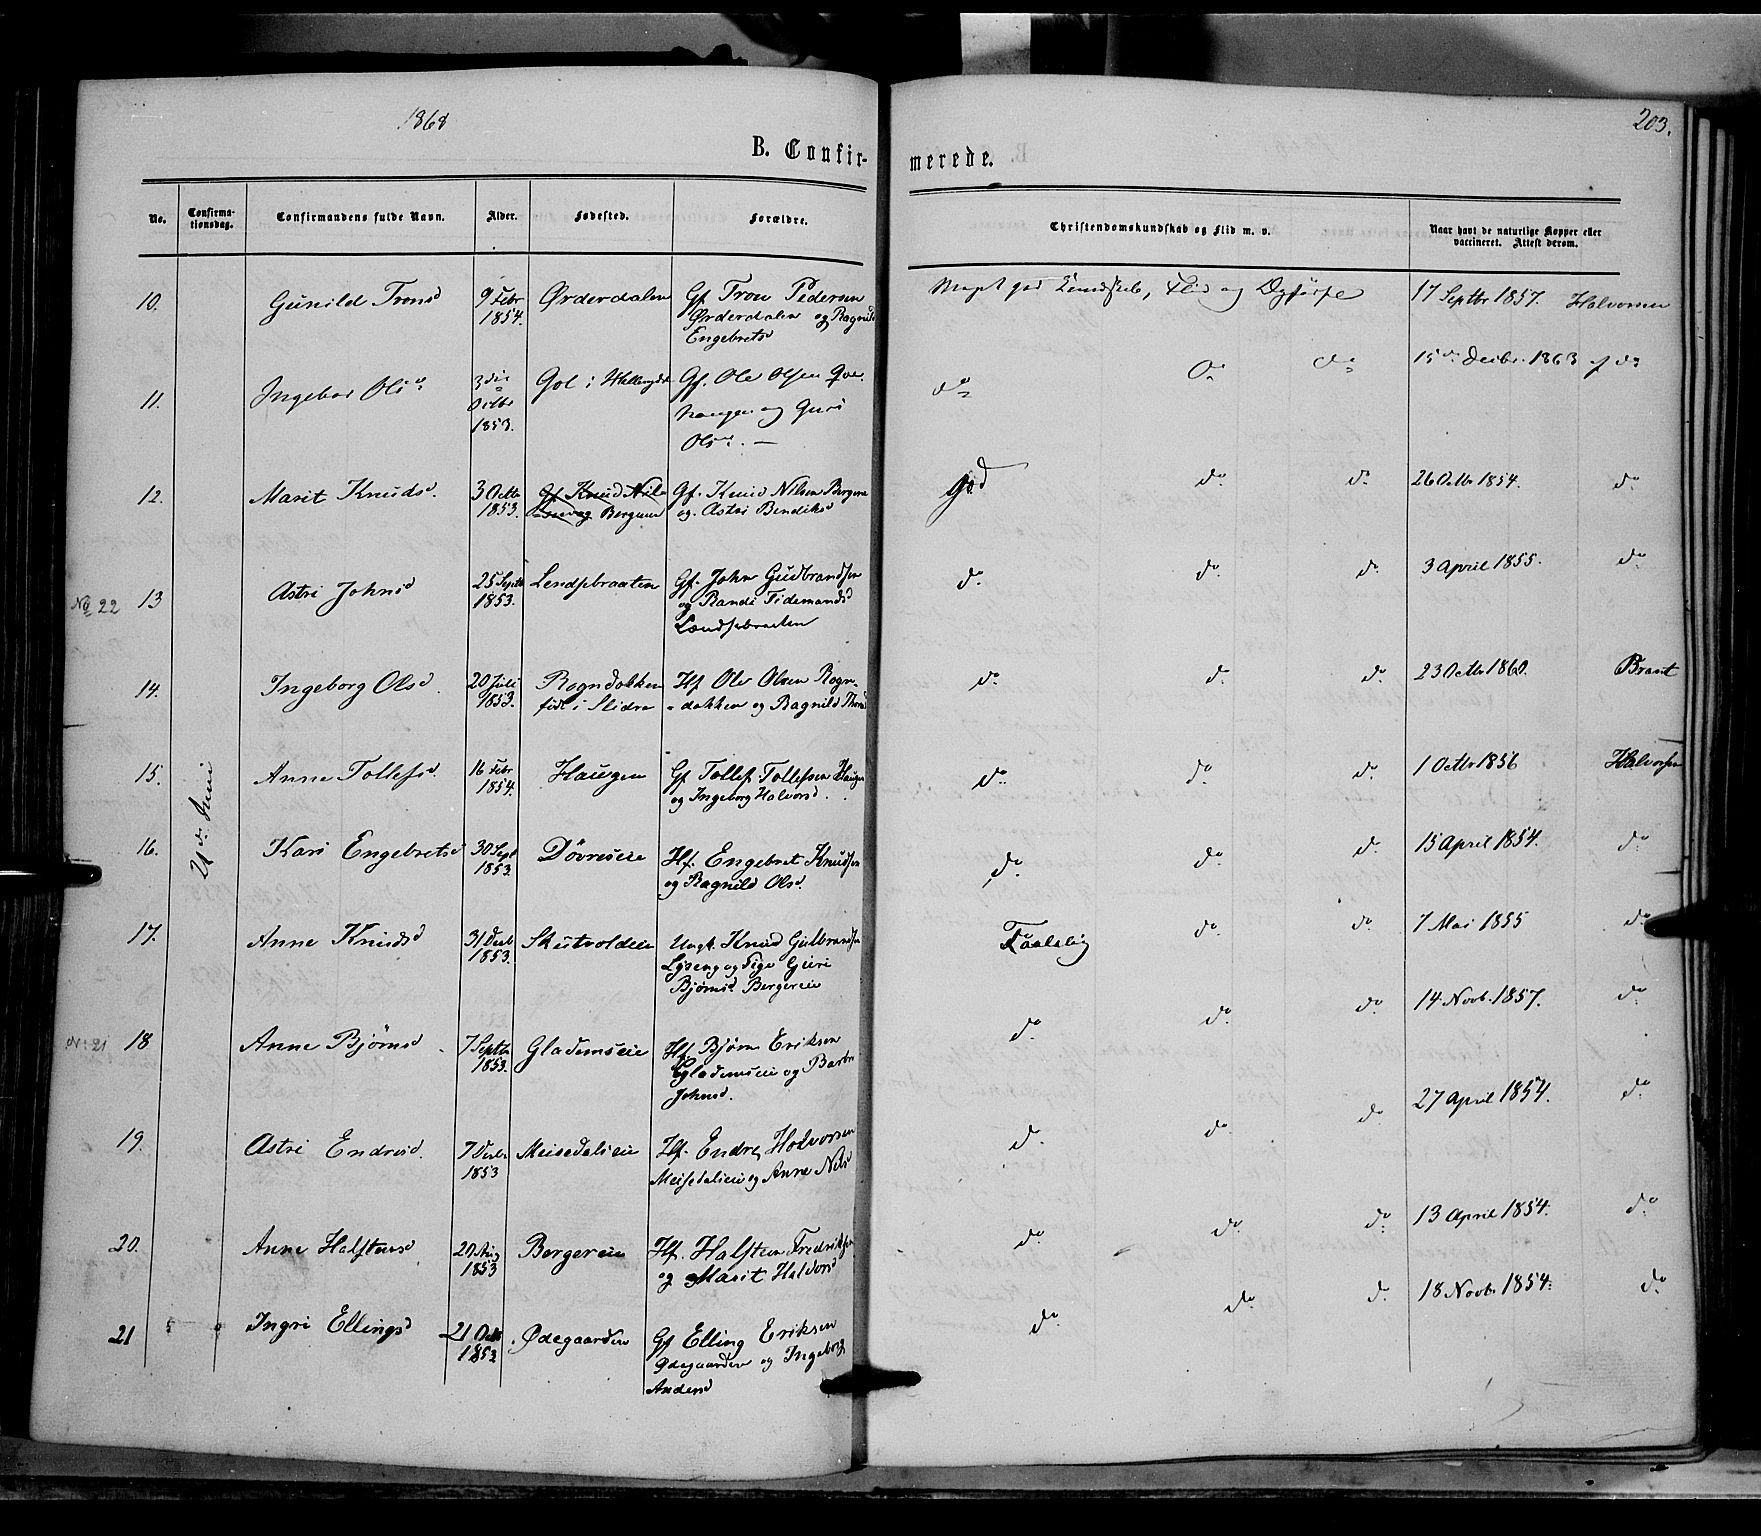 1868
203.
B. Confirmerede.
No. Confirmationsdag. Confirmandens fulde Navn. Alder. Fødested. Forældre. Christendomskundskab og Flid m. v. Naar havt de naturlige Kopper eller vaccineret. Attest derom.
21de Juni
10. Gunild Tronsd 9 Febr 1854. Ørderdalen Gf. Tron Pedersen Meget god Kundskab, Flid og Opførsel 17 Septbr 1857. Halvorsen
Ørderdalen og Ragnild
Engebretsd
11. Ingebor Olsd 1853. Gol i Hallingdal Gf. Ole Olsen do do do 15de Decbr. 1863 af do
haugen og Guri
Olsd. —
12. Marit Knudsd. 3 Octbr 1853. Gf Knud Nils Bergene Gf. Knud Nilsen Bergene god do do 26 Octbr 1854. do
og Astri Bendiksd
No 22 13 Astri Johnsd 25 Septbr 1853. Lendsebraaten Gf. John Gudbrandsen do do do 3 April 1855. do
og Randi Tidemandsd
Lændsebraaten
14. Ingeborg Olsd. 20 Juli 1853. Rogndokken Hf Ole Olsen Rogn- do do do 23 Octbr 1860. Brant
født i Slidre dokken og Ragnild Thorsd
15. Anne Tollefsd. 16 Febr 1854. Haugen Gf Tollef Tollefsen Haugen do do do 1 Octbr 1856 Halvorsen
og Ingeborg Halvorsd.
16. Kari Engebretsd 30 Sept 1853. Døvreseie Hf. Engebret Knudsen do do do 15 April 1854. do
og Ragnild Olsd.
17. Anne Knudsd 31 Decb 1853. Skutvoldeie Ungk. Knud Gulbrandsen Taalelig do do 7 Mai 1855 do
Lyseng og Pige Guri
Bjørnsd. Bergereie
No 21 18 Anne Bjørnsd. 7 Septbr 1853. Glademseie Hf. Bjørn Eriksen do do do 14 Novb. 1857. do
Glademseie og Barbro
Johnsd.
19. Astri Endresd. 7 Decbr 1853 Meisedalseie Hf. Endre Halvorsen do do do 27 April 1854. do
Meisedalseie og Anne Nilsd
20. Anne Halstensd 20 Aug 1853 Bergereie Hf. Halsten Fredriksen do do do 13 April 1854. do
og Marit Halvorsd
21 Ingri Ellingsd 21 Octb 1853 Ødegaarden Gf Elling Eriksen do do do 18 Novb. 1854. do
Ødegaarden og Ingeborg
Andersd